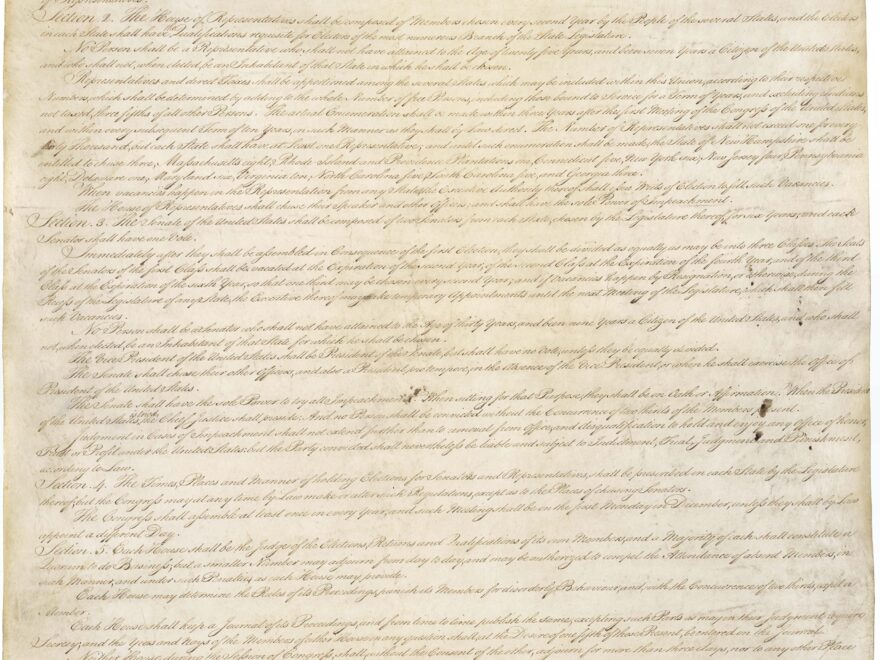 of Representatives.
Section. 2. The House of Representatives shall be composed of Members chosen every second Year by the People of the several States, and the Electors
in each State shall have the Qualifications requisite for Electors of the most numerous Branch of the State Legislature.
No Person shall be a Representative who shall not have attained to the Age of twenty five Years, and been seven Years a Citizen of the United States,
and who shall not, when elected, be an Inhabitant of that State in which he shall be chosen.
Representatives and direct Taxes shall be apportioned among the several States which may be included within this Union, according to their respective
Numbers, which shall be determined by adding to the whole Number of free Persons, including those bound to Service for a Term of Years, and excluding Indians
not taxed, three fifths of all other Persons. The actual Enumeration shall be made within three Years after the first Meeting of the Congress of the United States,
and within every subsequent Term of ten Years, in such Manner as they shall by Law direct. The Number of Representatives shall not exceed one for every
thirty Thousand, but each State shall have at Least one Representative; and until such enumeration shall be made, the State of New Hampshire shall be
entitled to chuse three, Massachusetts eight, Rhode Island and Providence Plantations one, Connecticut five, New York six, New Jersey four, Pennsylvania
eight, Delaware one, Maryland six, Virginia ten, North Carolina five, South Carolina five, and Georgia three.
When vacancies happen in the Representation from any State, the Executive Authority thereof shall issue Writs of Election to fill such Vacancies.
The House of Representatives shall chuse their Speaker and other Officers; and shall have the sole Power of Impeachment.
Section. 3. The Senate of the United States shall be composed of two Senators from each State, chosen by the Legislature thereof, for six Years; and each
Senator shall have one Vote.
Immediately after they shall be assembled in Consequence of the first Election, they shall be divided as equally as may be into three Classes. The Seats
of the Senators of the first Class shall be vacated at the Expiration of the second Year, of the second Class at the Expiration of the fourth Year, and of the third
Class at the Expiration of the sixth Year, so that one third may be chosen every second Year; and if Vacancies happen by Resignation, or otherwise, during the
Recess of the Legislature of any State, the Executive thereof may make temporary Appointments until the next Meeting of the Legislature, which shall then fill
such Vacancies.
No Person shall be a Senator who shall not have attained to the Age of thirty Years, and been nine Years a Citizen of the United States, and who shall
not, when elected, be an Inhabitant of that State for which he shall be chosen.
The Vice President of the United States shall be President of the Senate, but shall have no Vote, unless they be equally divided.
The Senate shall chuse their other Officers, and also a President pro tempore, in the Absence of the Vice President, or when he shall exercise the Office of
President of the United States.
The Senate shall have the sole Power to try all Impeachments. When sitting for that Purpose, they shall be on Oath or Affirmation. When the President
of the United States is tried, the Chief Justice shall preside: And no Person shall be convicted without the Concurrence of two thirds of the Members present.
Judgment in Cases of Impeachment shall not extend further than to removal from Office, and disqualification to hold and enjoy any Office of honor,
Trust or Profit under the United States: but the Party convicted shall nevertheless be liable and subject to Indictment, Trial, Judgment and Punishment,
according to Law.
Section. 4. The Times, Places and Manner of holding Elections for Senators and Representatives, shall be prescribed in each State by the Legislature
thereof; but the Congress may at any time by Law make or alter such Regulations, except as to the Places of chusing Senators.
The Congress shall assemble at least once in every Year, and such Meeting shall be on the first Monday in December, unless they shall by Law
appoint a different Day.
Section. 5. Each House shall be the Judge of the Elections, Returns and Qualifications of its own Members, and a Majority of each shall constitute a
Quorum to do Business; but a smaller Number may adjourn from day to day, and may be authorized to compel the Attendance of absent Members, in
such Manner, and under such Penalties as each House may provide.
Each House may determine the Rules of its Proceedings, punish its Members for disorderly Behaviour, and, with the Concurrence of two thirds, expel a
Member.
Each House shall keep a Journal of its Proceedings, and from time to time publish the same, excepting such Parts as may in their Judgment require
Secrecy; and the Yeas and Nays of the Members of either House on any question shall, at the Desire of one fifth of those Present, be entered on the Journal.
Neither House, during the Session of Congress, shall, without the Consent of the other, adjourn for more than three days, nor to any other Place